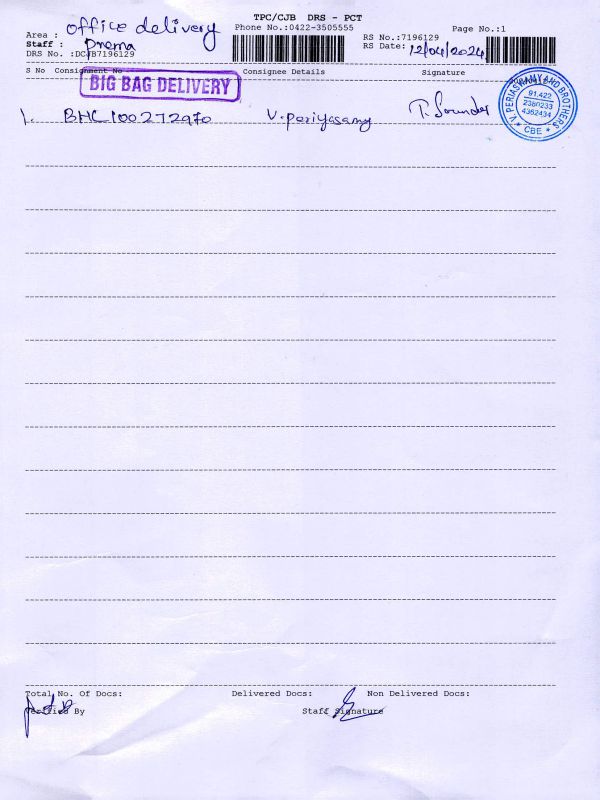 TPC/CJB DRS - PCT
Area : office delivery
Phone No.:0422-3505555
Page No.:1
RS No.:7196129
Staff : Prema
RS Date: 12/04/2024
DRS No. :DCJB7196129
S No Consignment No Consignee Details Signature
BIG BAG DELIVERY
V. PERIASWAMY AND BROTHERS
91.422
2380233
4362434
* CBE *
1. BHL100272970 V. periyasamy
Total No. Of Docs: Delivered Docs: Non Delivered Docs:
Verified By Staff Signature